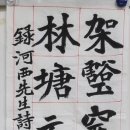 架壑
林塘
録河西先生詩